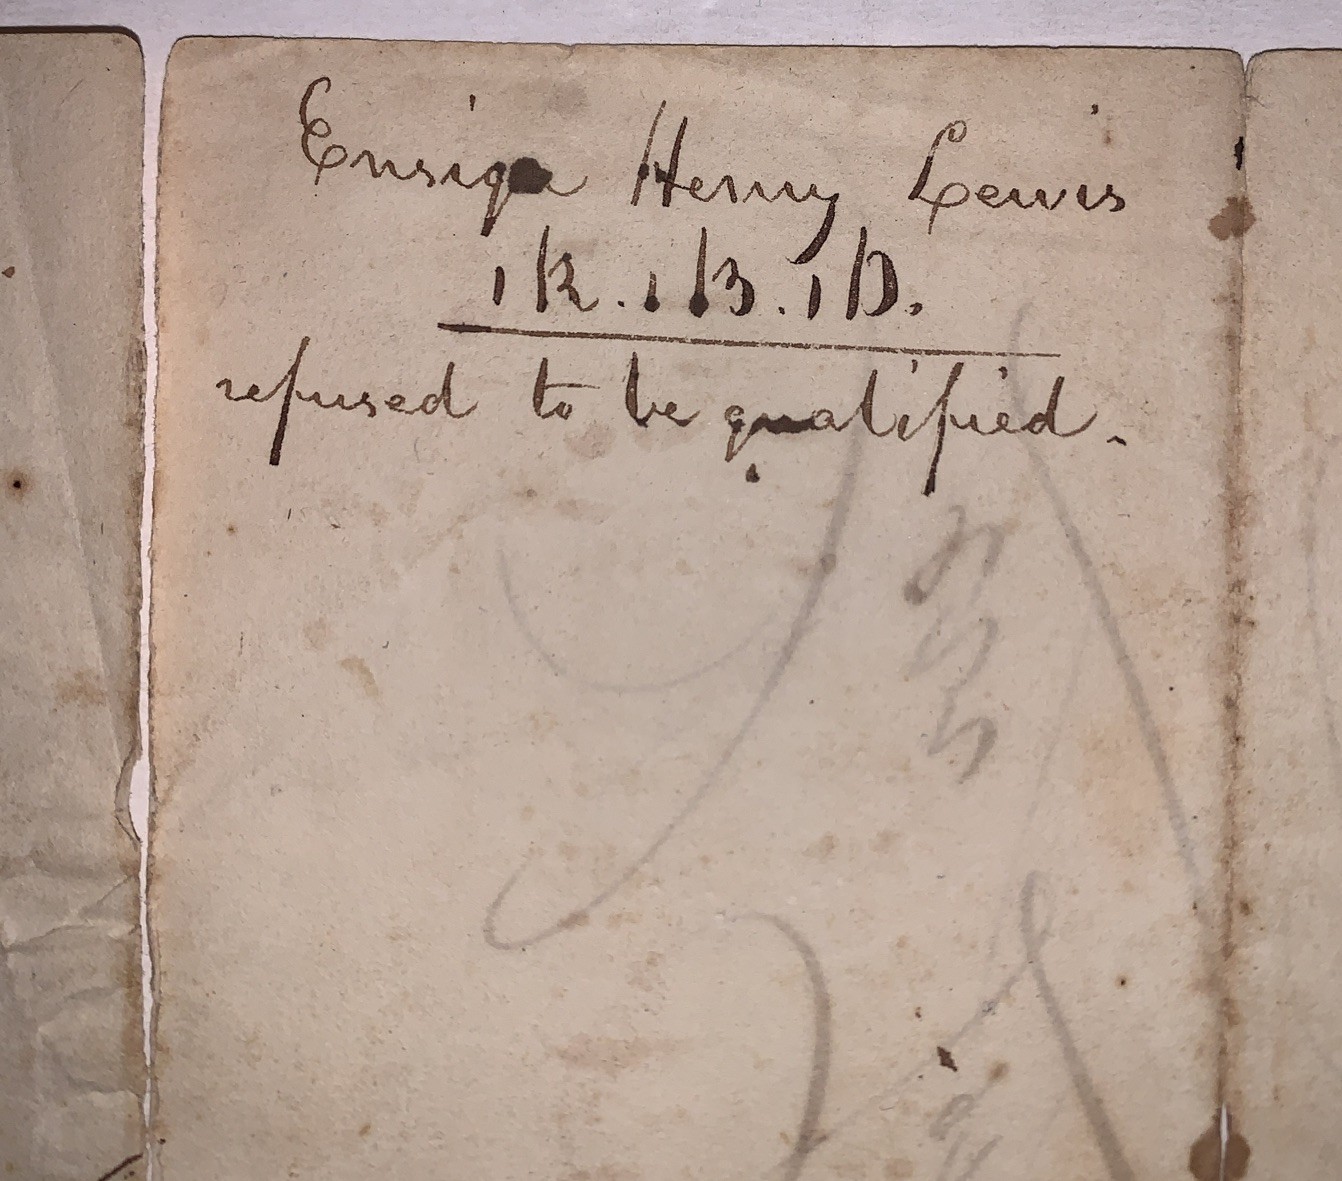 Ensign Henry Lewis
1 R. 1 B. 1 D.
refused to be qualified.